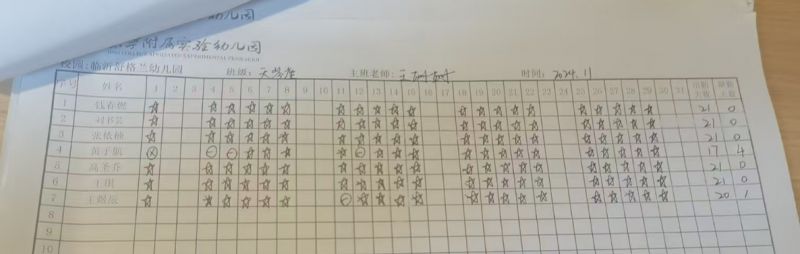 幼儿园
学附属实验幼儿园
校园:临沂舒格兰幼儿园 班级: 主班老师:王 时间: 2024.11
序号 姓名 1 2 3 4 5 6 7 8 9 10 11 12 13 14 15 16 17 18 19 20 21 22 23 24 25 26 27 28 29 30 31 出勤天数 缺勤天数
1 ☆ ☆ ☆ ☆ ☆ ☆ ☆ ☆ ☆ ☆ ☆ ☆ ☆ ☆ ☆ ☆ ☆ ☆ ☆ ☆ ☆ 21 0
2 ☆ ☆ ☆ ☆ ☆ ☆ ☆ ☆ ☆ ☆ ☆ ☆ ☆ ☆ ☆ ☆ ☆ ☆ ☆ ☆ ☆ 21 0
3 张依楠 ☆ ☆ ☆ ☆ ☆ ☆ ☆ ☆ ☆ ☆ ☆ ☆ ☆ ☆ ☆ ☆ ☆ ☆ ☆ ☆ ☆ 21 0
4 黄子航 ⊗ ⊖ ⊖ ☆ ☆ ☆ ☆ ⊖ ☆ ☆ ☆ ☆ ☆ ☆ ☆ ☆ ☆ ☆ ☆ ☆ ☆ 17 4
5 高圣乔 ☆ ☆ ☆ ☆ ☆ ☆ ☆ ☆ ☆ ☆ ☆ ☆ ☆ ☆ ☆ ☆ ☆ ☆ ☆ ☆ ☆ 21 0
6 王琪 ☆ ☆ ☆ ☆ ☆ ☆ ☆ ☆ ☆ ☆ ☆ ☆ ☆ ☆ ☆ ☆ ☆ ☆ ☆ ☆ ☆ 21 0
7 王煜辰 ☆ ☆ ☆ ☆ ☆ ☆ ⊖ ☆ ☆ ☆ ☆ ☆ ☆ ☆ ☆ ☆ ☆ ☆ ☆ ☆ ☆ 20 1
8
9
10